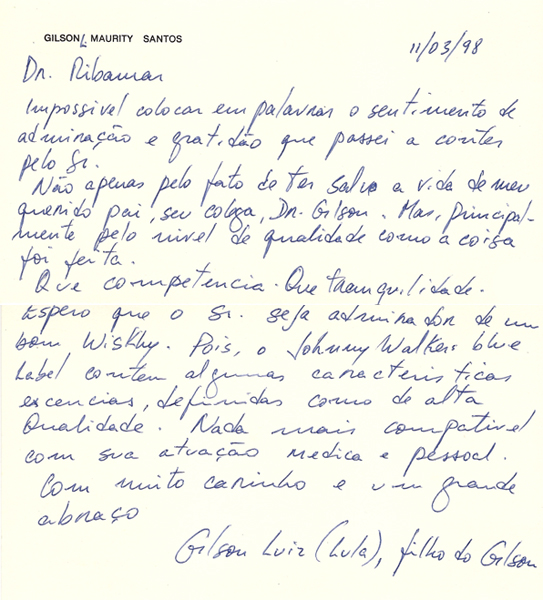 GILSON L MAURITY SANTOS
11/03/98
Dr. Ribamar
Impossivel colocar em palavras o sentimento de
admiração e gratidão que passei a conter
pelo Sr.
Não apenas pelo fato de ter salvo a vida de meu
querido pai, seu colega, Dr. Gilson. Mas, principal-
mente pelo nivel de qualidade como a coisa
foi feita.
Que competencia. Que tranquilidade.
Espero que o Sr. seja admirador de um
bom Wiskhy. Pois, o Johnny Walker blue
Label contem algumas caracteristicas
escencias, definidas como de alta
Qualidade. Nada mais compativel
com sua atuação medica e pessoal.
Com muito carinho e um grande
abraço
Gilson Luiz (Lula), filho do Gilson